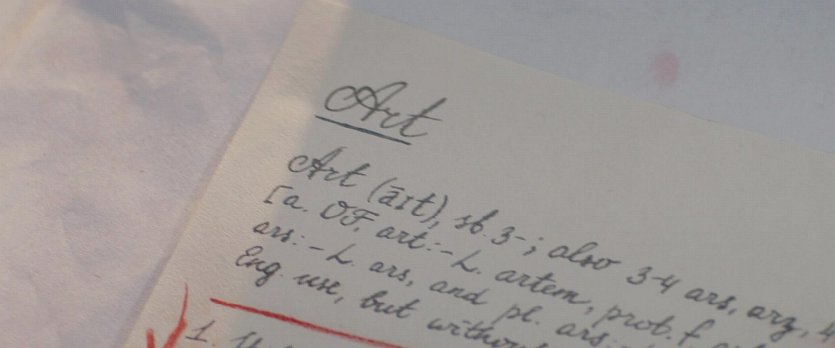 Art
Art (āɪt), sb. 3-; also 3-4 ars, arz, 4
[a. OF. art:- L. artem, prob. f.
ars:- L. ars, and pl. ars:-
Eng. use, but without
1.